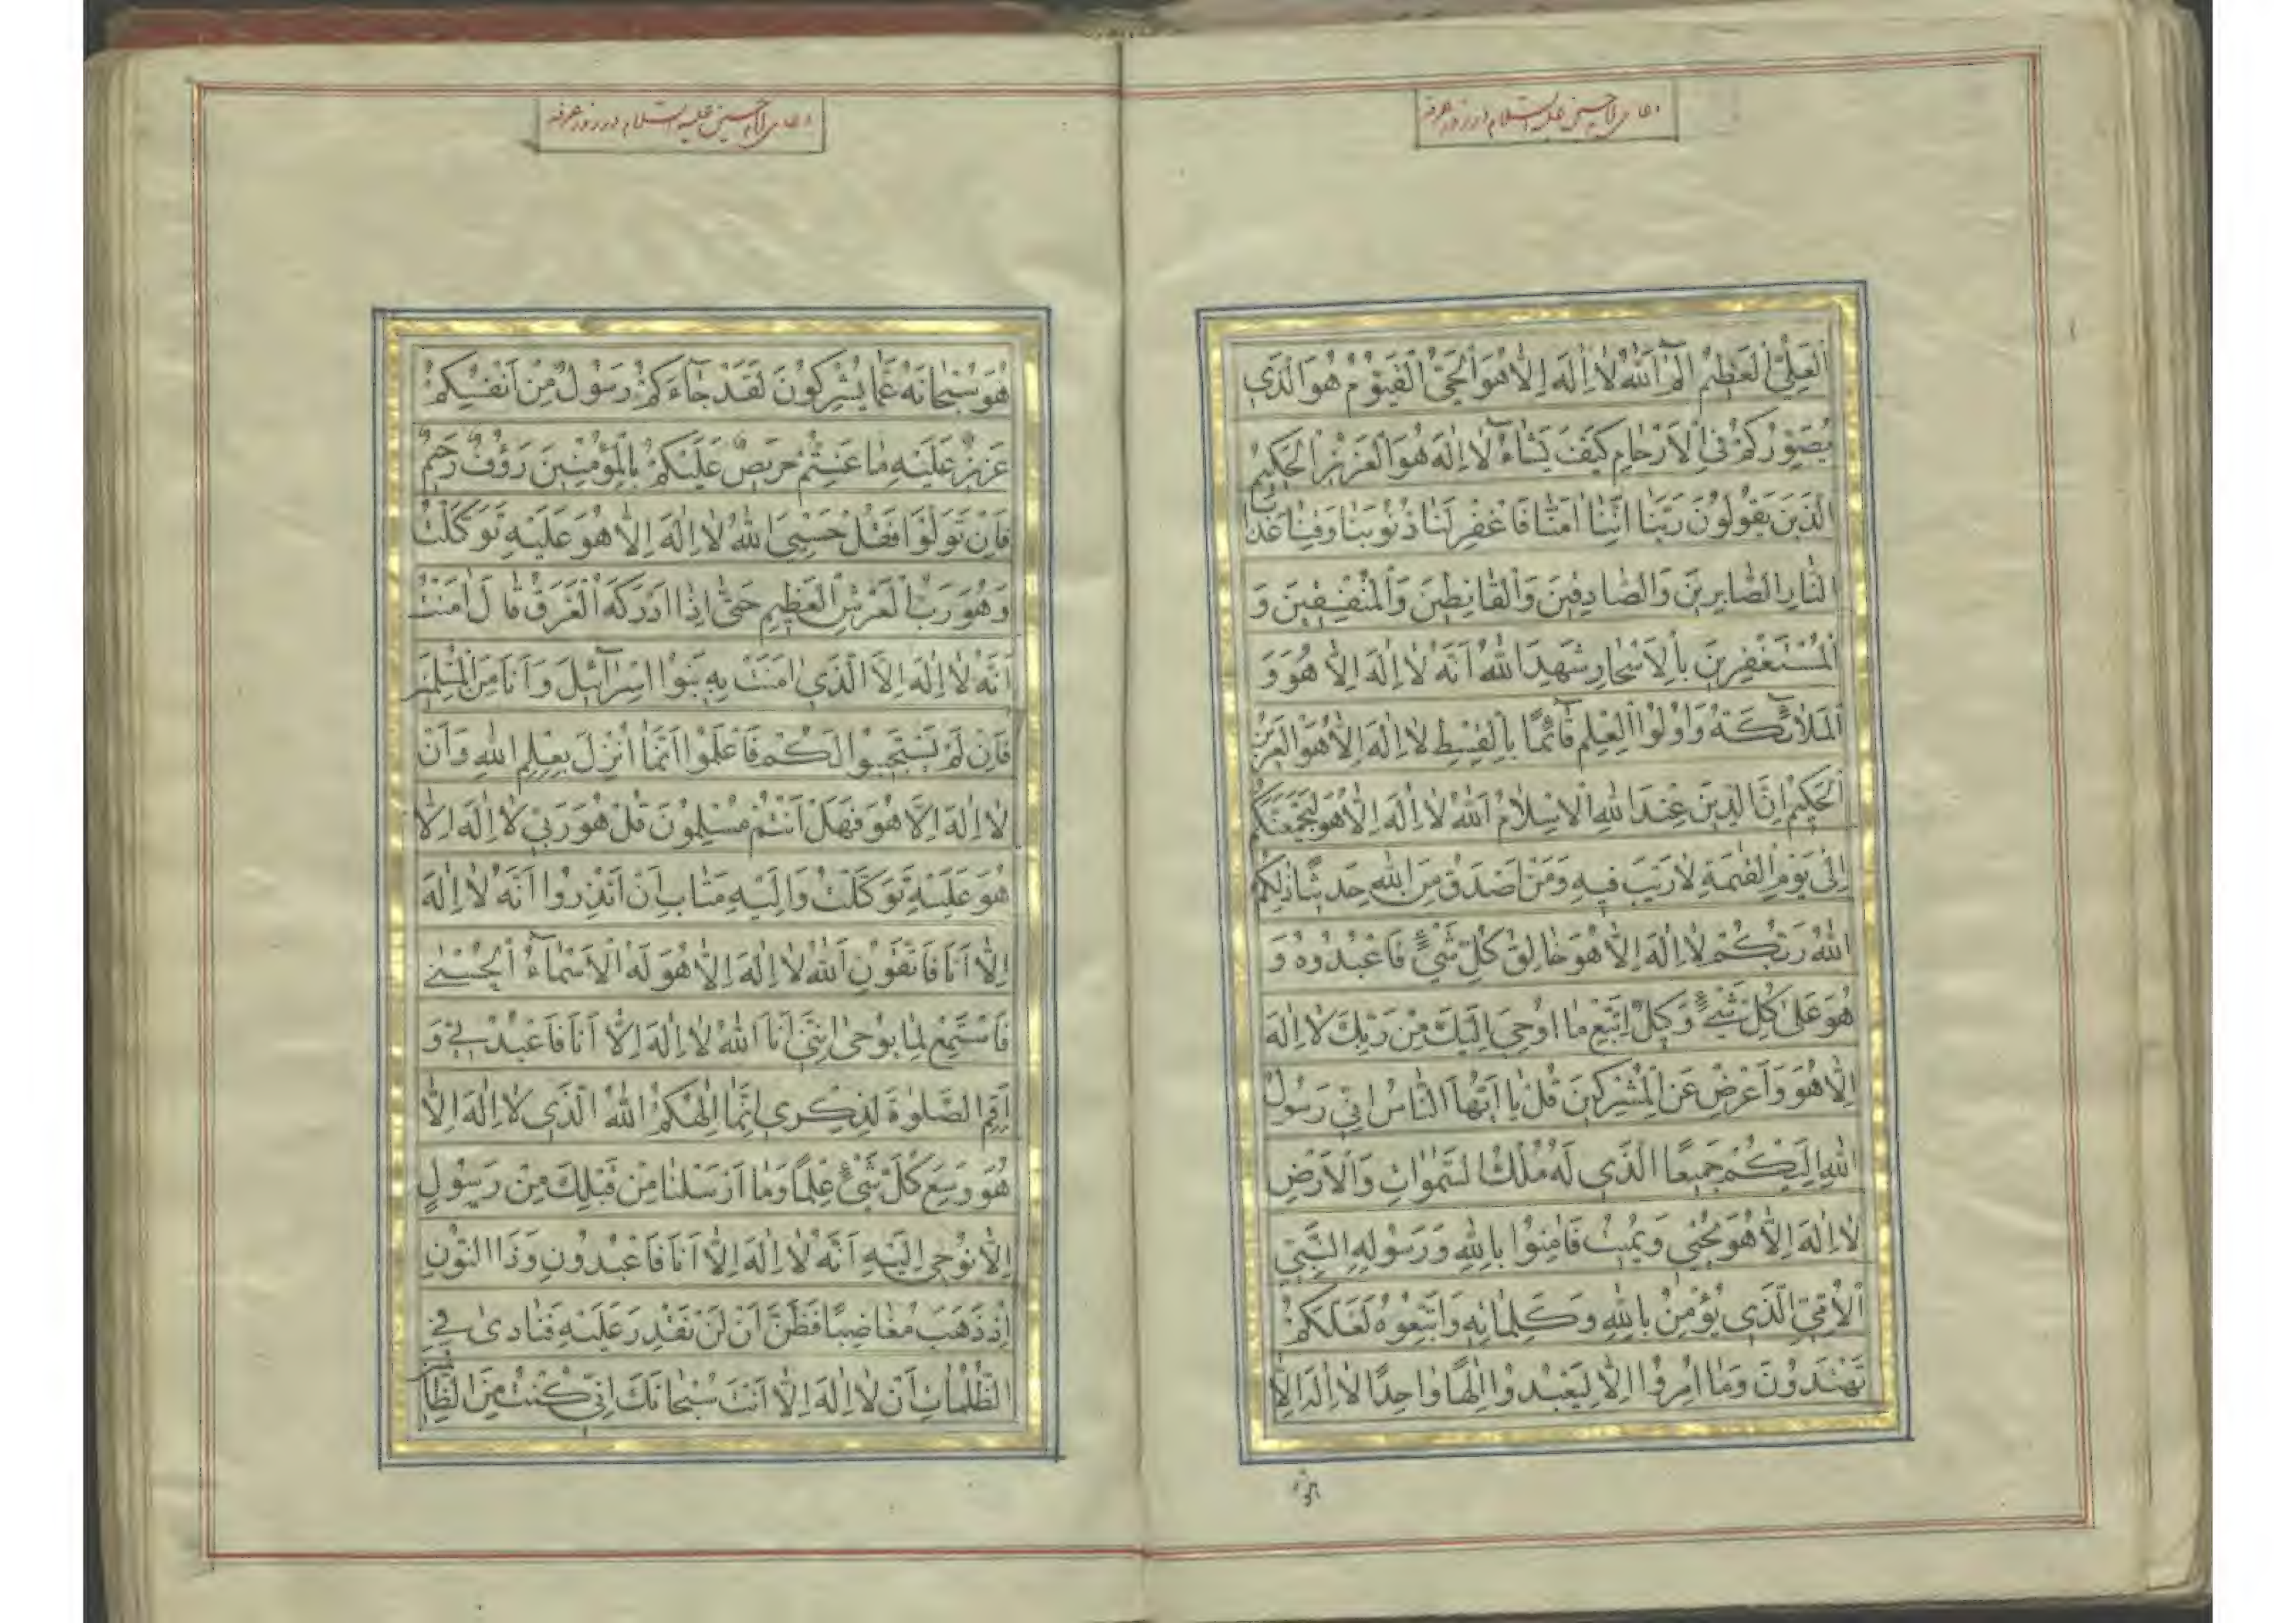 دعای امام حسین علیه السلام در روز عرفه
اَلْعَلِیُّ الْعَظِیمُ الٓمٓ اَللّٰهُ لَا اِلٰهَ اِلَّا هُوَ الْحَیُّ الْقَیُّومُ هُوَ الَّذِی
یُصَوِّرُکُمْ فِی الْاَرْحَامِ کَیْفَ یَشَآءُ لَا اِلٰهَ هُوَ الْعَزِیزُ الْحَکِیمُ
الَّذِینَ یَقُولُونَ رَبَّنَا اِنَّنَا اٰمَنَّا فَاغْفِرْ لَنَا ذُنُوبَنَا وَقِنَا عَذَابَ
النَّارِ الصَّابِرِینَ وَالصَّادِقِینَ وَالْقَانِطِینَ وَالْمُنْفِقِینَ وَ
الْمُسْتَغْفِرِینَ بِالْاَسْحَارِ شَهِدَ اللّٰهُ اَنَّهُ لَا اِلٰهَ اِلَّا هُوَ وَ
الْمَلَآئِکَةُ وَاُولُوا الْعِلْمِ قَآئِمًا بِالْقِسْطِ لَا اِلٰهَ اِلَّا هُوَ الْعَزِیزُ
الْحَکِیمُ اِنَّ الدِّینَ عِنْدَ اللّٰهِ الْاِسْلَامُ اَللّٰهُ لَا اِلٰهَ اِلَّا هُوَ لَیَجْمَعَنَّکُمْ
اِلٰی یَوْمِ الْقِیٰمَةِ لَا رَیْبَ فِیهِ وَمَنْ اَصْدَقُ مِنَ اللّٰهِ حَدِیثًا ذٰلِکُمُ
اللّٰهُ رَبُّکُمْ لَا اِلٰهَ اِلَّا هُوَ خَالِقُ کُلِّ شَیْءٍ فَاعْبُدُوهُ وَ
هُوَ عَلٰی کُلِّ شَیْءٍ وَکِیلٌ اِتَّبِعْ مَا اُوحِیَ اِلَیْکَ مِنْ رَبِّکَ لَا اِلٰهَ
اِلَّا هُوَ وَاَعْرِضْ عَنِ الْمُشْرِکِینَ قُلْ یَا اَیُّهَا النَّاسُ اِنِّی رَسُولُ
اللّٰهِ اِلَیْکُمْ جَمِیعًا الَّذِی لَهُ مُلْکُ السَّمٰوَاتِ وَالْاَرْضِ
لَا اِلٰهَ اِلَّا هُوَ یُحْیِی وَیُمِیتُ فَاٰمِنُوا بِاللّٰهِ وَرَسُولِهِ النَّبِیِّ
الْاُمِّیِّ الَّذِی یُؤْمِنُ بِاللّٰهِ وَکَلِمَاتِهِ وَاتَّبِعُوهُ لَعَلَّکُمْ
تَهْتَدُونَ وَمَا اُمِرُوا اِلَّا لِیَعْبُدُوا اِلٰهًا وَاحِدًا لَا اِلٰهَ اِلَّا
دعای امام حسین علیه السلام در روز عرفه
هُوَ سُبْحَانَهُ عَمَّا یُشْرِکُونَ لَقَدْ جَآءَکُمْ رَسُولٌ مِنْ اَنْفُسِکُمْ
عَزِیزٌ عَلَیْهِ مَا عَنِتُّمْ حَرِیصٌ عَلَیْکُمْ بِالْمُؤْمِنِینَ رَؤُفٌ رَحِیمٌ
فَاِنْ تَوَلَّوْا فَقُلْ حَسْبِیَ اللّٰهُ لَا اِلٰهَ اِلَّا هُوَ عَلَیْهِ تَوَکَّلْتُ
وَهُوَ رَبُّ الْعَرْشِ الْعَظِیمِ حَتّٰی اِذَا اَدْرَکَهُ الْغَرَقُ قَالَ اٰمَنْتُ
اَنَّهُ لَا اِلٰهَ اِلَّا الَّذِی اٰمَنَتْ بِهِ بَنُوا اِسْرَآئِیلَ وَاَنَا مِنَ الْمُسْلِمِینَ
فَاِنْ لَمْ یَسْتَجِیبُوا لَکُمْ فَاعْلَمُوا اَنَّمَا اُنْزِلَ بِعِلْمِ اللّٰهِ وَاَنْ
لَا اِلٰهَ اِلَّا هُوَ فَهَلْ اَنْتُمْ مُسْلِمُونَ قُلْ هُوَ رَبِّی لَا اِلٰهَ اِلَّا
هُوَ عَلَیْهِ تَوَکَّلْتُ وَاِلَیْهِ مَتَابِ اَنْ اَنْذِرُوا اَنَّهُ لَا اِلٰهَ
اِلَّا اَنَا فَاتَّقُونِ اَللّٰهُ لَا اِلٰهَ اِلَّا هُوَ لَهُ الْاَسْمَآءُ الْحُسْنٰی
فَاسْتَمِعْ لِمَا یُوحٰی اِنَّنِی اَنَا اللّٰهُ لَا اِلٰهَ اِلَّا اَنَا فَاعْبُدْنِی وَ
اَقِمِ الصَّلٰوةَ لِذِکْرِی اِنَّمَا اِلٰهُکُمُ اللّٰهُ الَّذِی لَا اِلٰهَ اِلَّا
هُوَ وَسِعَ کُلَّ شَیْءٍ عِلْمًا وَمَا اَرْسَلْنَا مِنْ قَبْلِکَ مِنْ رَسُولٍ
اِلَّا نُوحِی اِلَیْهِ اَنَّهُ لَا اِلٰهَ اِلَّا اَنَا فَاعْبُدُونِ وَذَا النُّونِ
اِذْ ذَهَبَ مُغَاضِبًا فَظَنَّ اَنْ لَنْ نَقْدِرَ عَلَیْهِ فَنَادٰی فِی
الظُّلُمَاتِ اَنْ لَا اِلٰهَ اِلَّا اَنْتَ سُبْحَانَکَ اِنِّی کُنْتُ مِنَ الظَّالِمِینَ